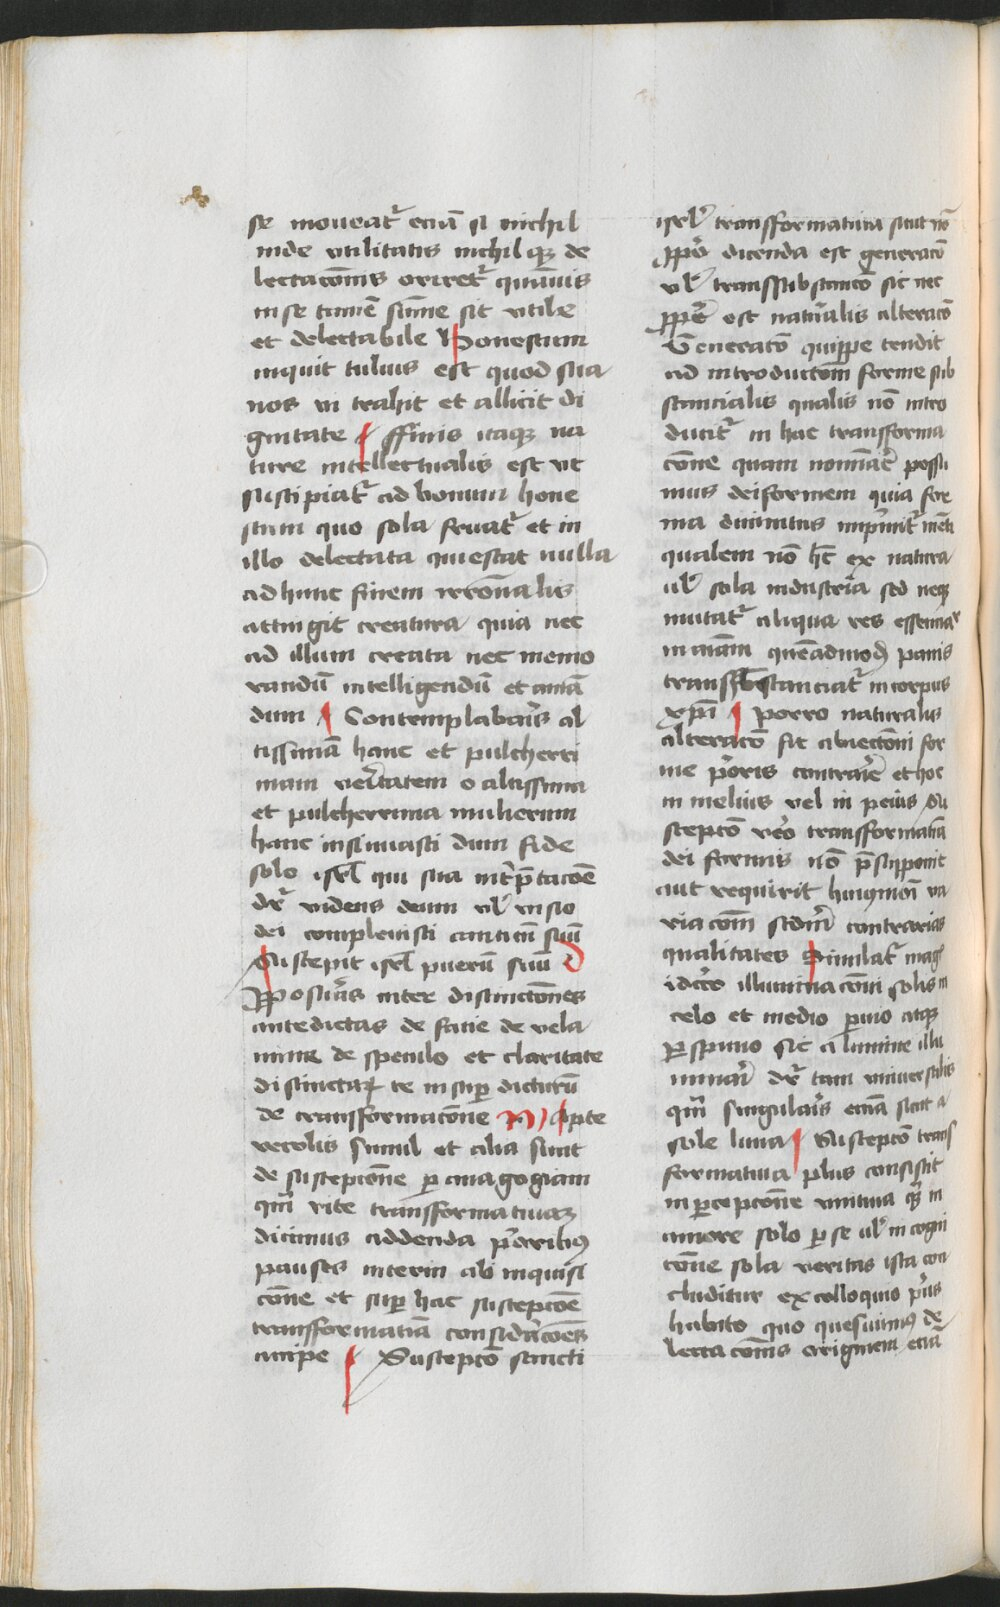 se moueat᷑ eciā si nichil
inde vtilitatis nichilqꝫ de
lectacōnis oriret᷑ quāuis
in se tamē sūme sit vtile
et delectabile Honestum
inquit tulius est quod sua
nos vi trahit et allicit di
gnitate ffinis itaqꝫ na
ture intellectualis est vt
suscipiat᷑ ad bonum hone
stum quo sola feruat᷑ et in
illo delectata quiescat nulla
ad hunc finem irrōnalis
attingit creatura quia nec
ad illum creata nec memo
randū intelligendū et amā
dum Contemplabar̄is al
tissimā hanc et pulcherri
mam veritatem o altissima
et pulcherrima mulierum
hanc insinuasti dum fide
solo isrl̄ qui sua int̄pretacōe
dr̄ videns deum vl̄ visio
dei compleuisti canticū suū
Suscepit isrl̄ puerū suū D
Posueris inter distinctōnes
antedictas de facie de vela
mine de speculo et claritate
distinctaꝝ te insuꝑ dicturū
de transformacōne M Apte
recolis simul et alia sunt
de susceptōne ꝑ anagogiam
qm̄ rite transformatiuaꝫ
dicimus addenda prioribꝰ
pauses interim ab inquisi
cōne et suꝑ hac susceptōe
transformatiā considrācōes
accipe Susceptō sancti
isrl̄ transformatiua sicut nō
ꝓpē dicenda est generacō
vl̄ transsubstancō sic nec
ꝓpē est naturalis alteracō
Generacō quippe tendit
ad introductōm forme sub
stancialis qualis nō intro
ducit᷑ in hac transforma
cōne quam nomīare possu
mus deiformem quia for
ma diuinitus imprimit᷑ menti
qualem nō hēt ex natura
vl̄ sola industria sed neqꝫ
mutat᷑ aliqua res essencia
in aliam quēadmodū panis
transsubstanciat᷑ in corpus
xp̄i Porro naturalis
alteracō fit abiectōni for
me prioris contrarie et hoc
in melius vel in peius Su
sceptō vero transformatiā
dei formis nō p̄supponit
aut requirit huiusmōi va
riacōm scdm̄ contrarias
qualitates Similat᷑ mag
idcirco illuminacōni solis in
celo et medio ꝑuio atqꝫ
ꝑspicuo sic a lumine illu
minari dr̄ tam vniuersalis
qm̄ singularis eciā sicut a
sole luna Susceptō trans
formatiua plus consistit
in ꝑcepcōne vnitiua qꝫ in
amore solo ꝑ se vl̄ in cogni
cōne sola veritas ista con
cluditur ex colloquio prius
habito quo quesiuimꝰ de
lectacōnis originem eciā